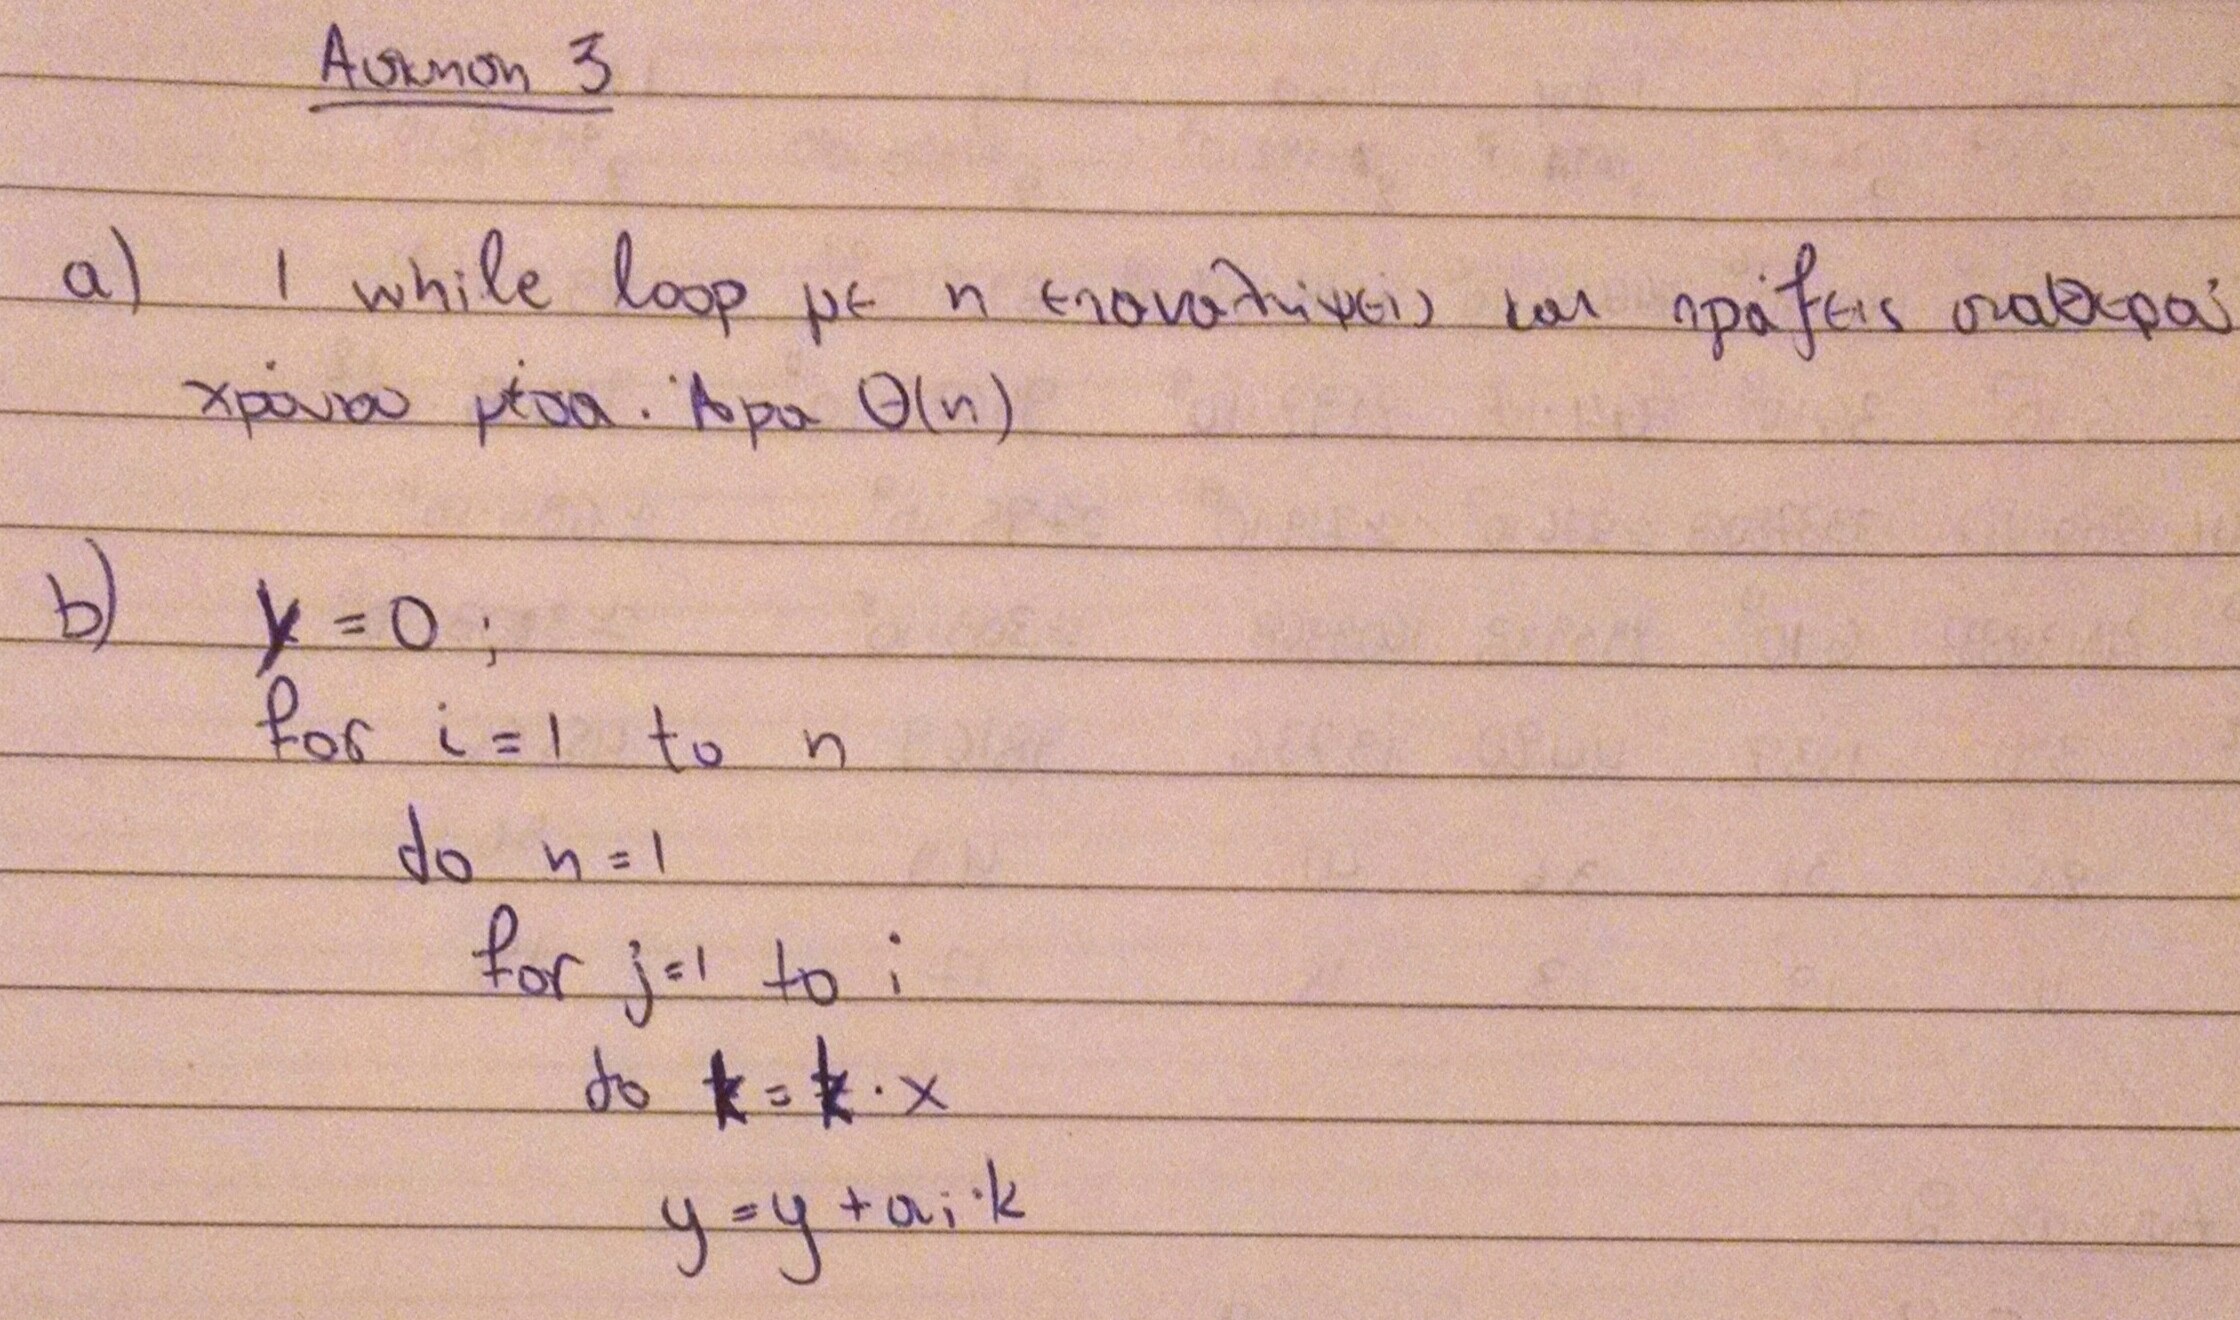 Άσκηση 3
a) 1 while loop με n επαναλήψεις και πράξεις σταθερού
χρόνου μέσα. Άρα Θ(n)
b) y = 0 ;
for i = 1 to n
do n = 1
for j=1 to i
do k = k · x
y = y + ai · k